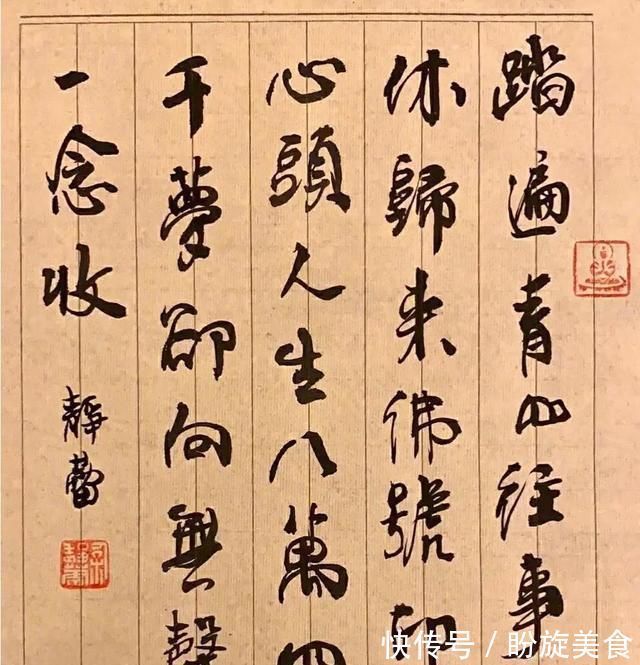 踏遍青山往事
休歸来佛號印
心頭人生八萬四
千夢卻向無聲
一念收
靜蕾
快传号 / 盼旋美食